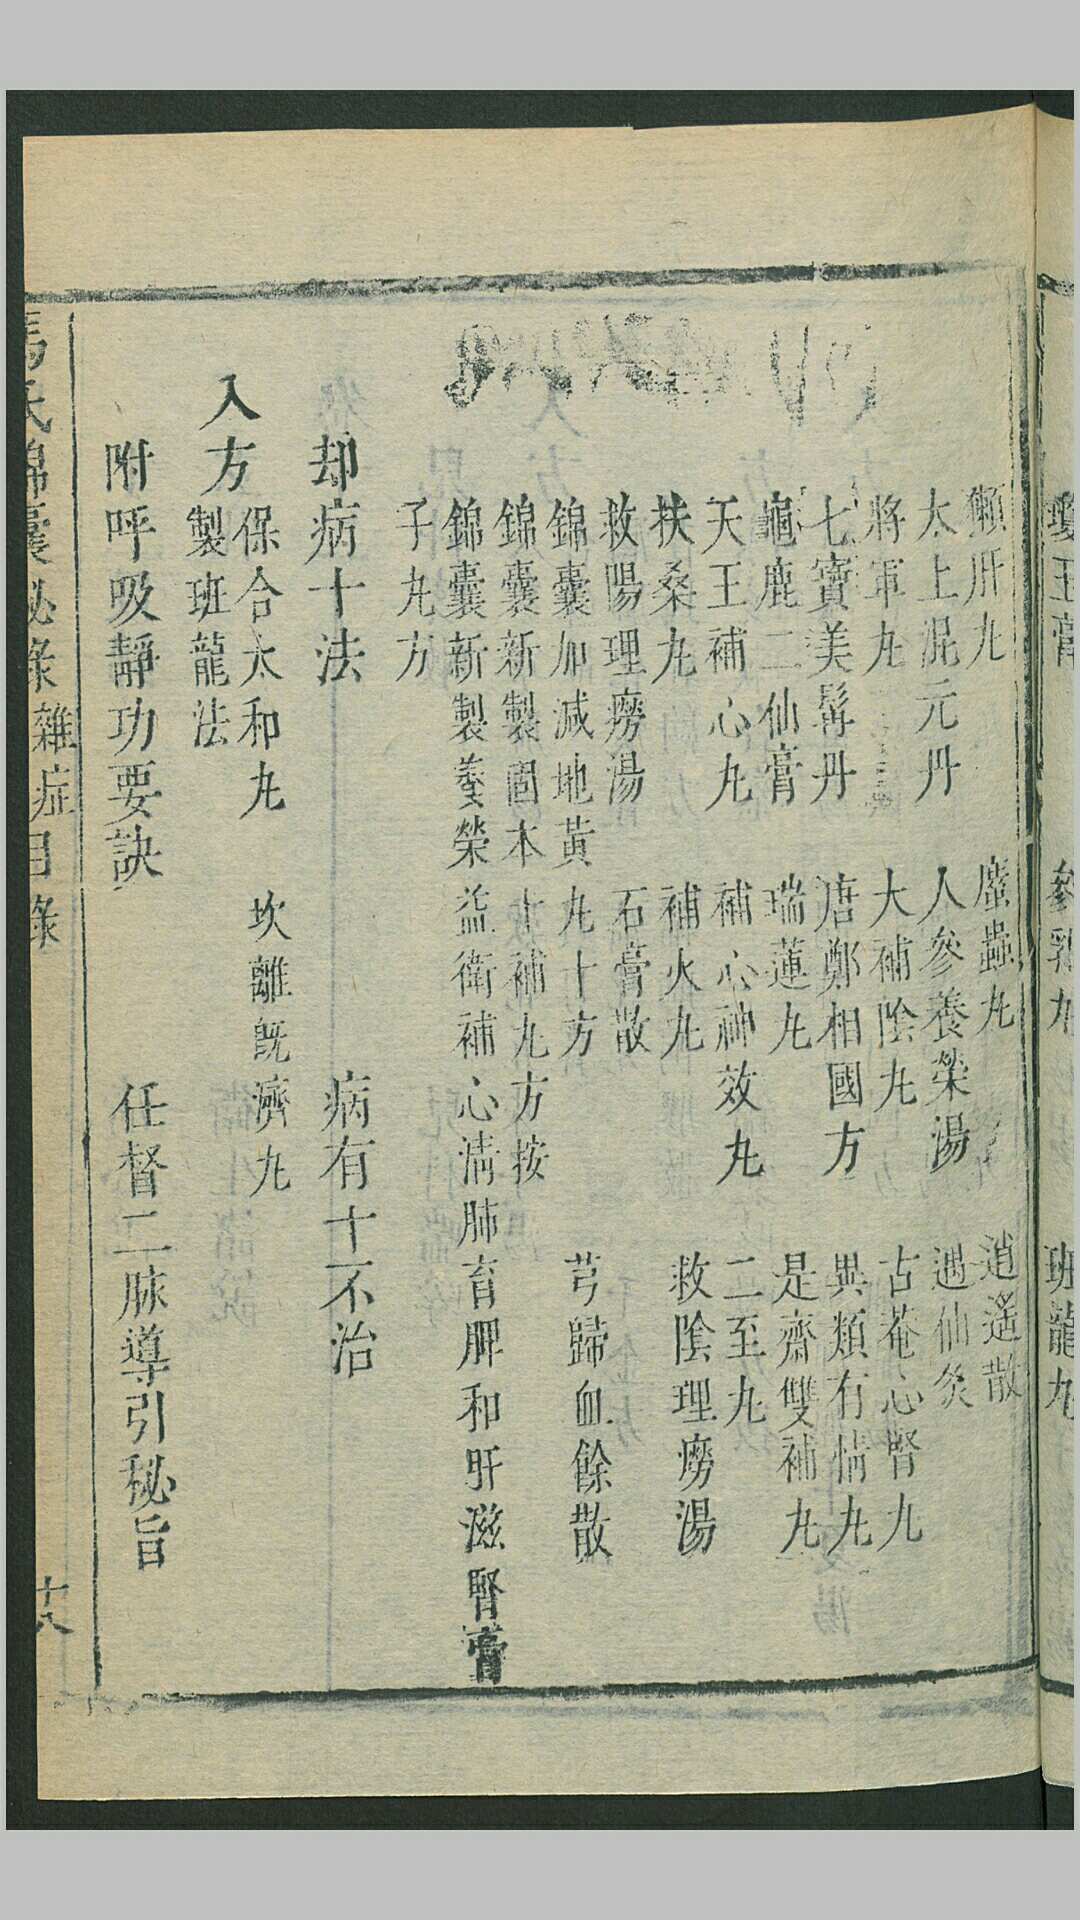 瓊玉膏　參乳丸　班龍丸
獺肝丸　䗪蟲丸　逍遥散
太上混元丹　人參養榮湯　遇仙灸
將軍丸　大補陰丸　古菴心腎丸
七寶美髯丹　唐鄭相國方　異類有情丸
龜鹿二仙膏　瑞蓮丸　是齋雙補丸
天王補心丸　補心神效丸　二至丸
扶桑丸　補火丸　救陰理癆湯
救陽理癆湯　石膏散　芎歸血餘散
錦囊加減地黃丸十方
錦囊新製固本十補丸方按
錦囊新製養榮益衛補心清肺育脾和肝滋腎膏
子丸方
却病十法　病有十不治
入方
保合太和丸　坎離既濟丸
製班龍法
附呼吸靜功要訣　任督二脉導引秘旨
馮氏錦囊秘錄　雜症目錄　十八